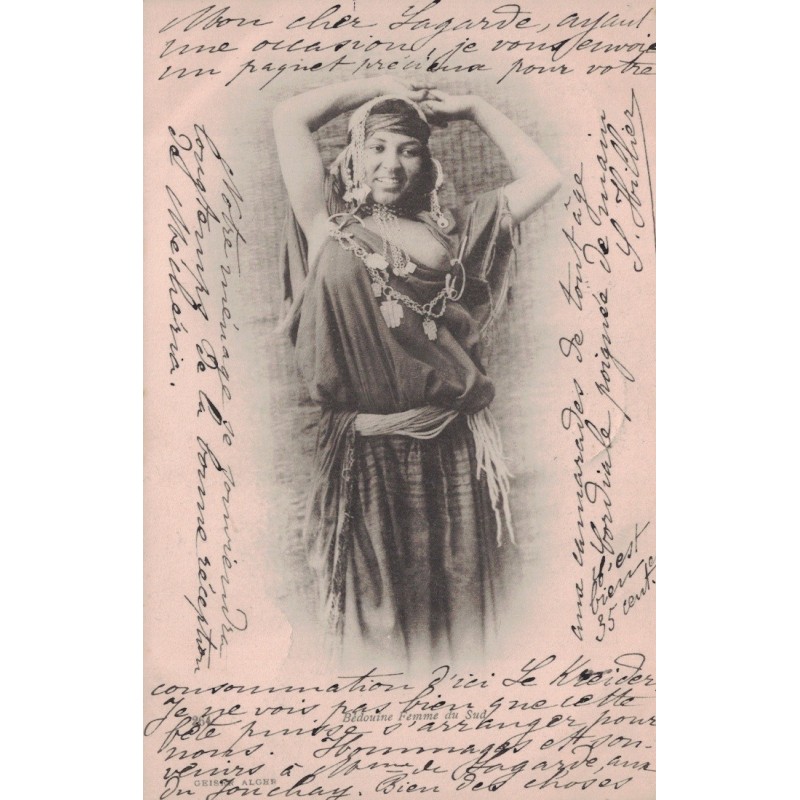 Mon cher Lagarde, ayant
une occasion, je vous envoie
un paquet précieux pour votre
consommation d'ici Le Kreider
Je ne vois pas bien que cette
fête puisse s'arranger pour
nous. Hommages et sou-
venirs à Mme de Lagarde aux
du Jonchay. Bien des choses
aux camarades de tout âge
Cordiale poignée de main
S. Hillier
Notre ménage se souviendra
longtemps de la bonne réception
de Mecheria.
c'est
bien
35 cent.
Bédouine Femme du Sud
GEISER ALGER